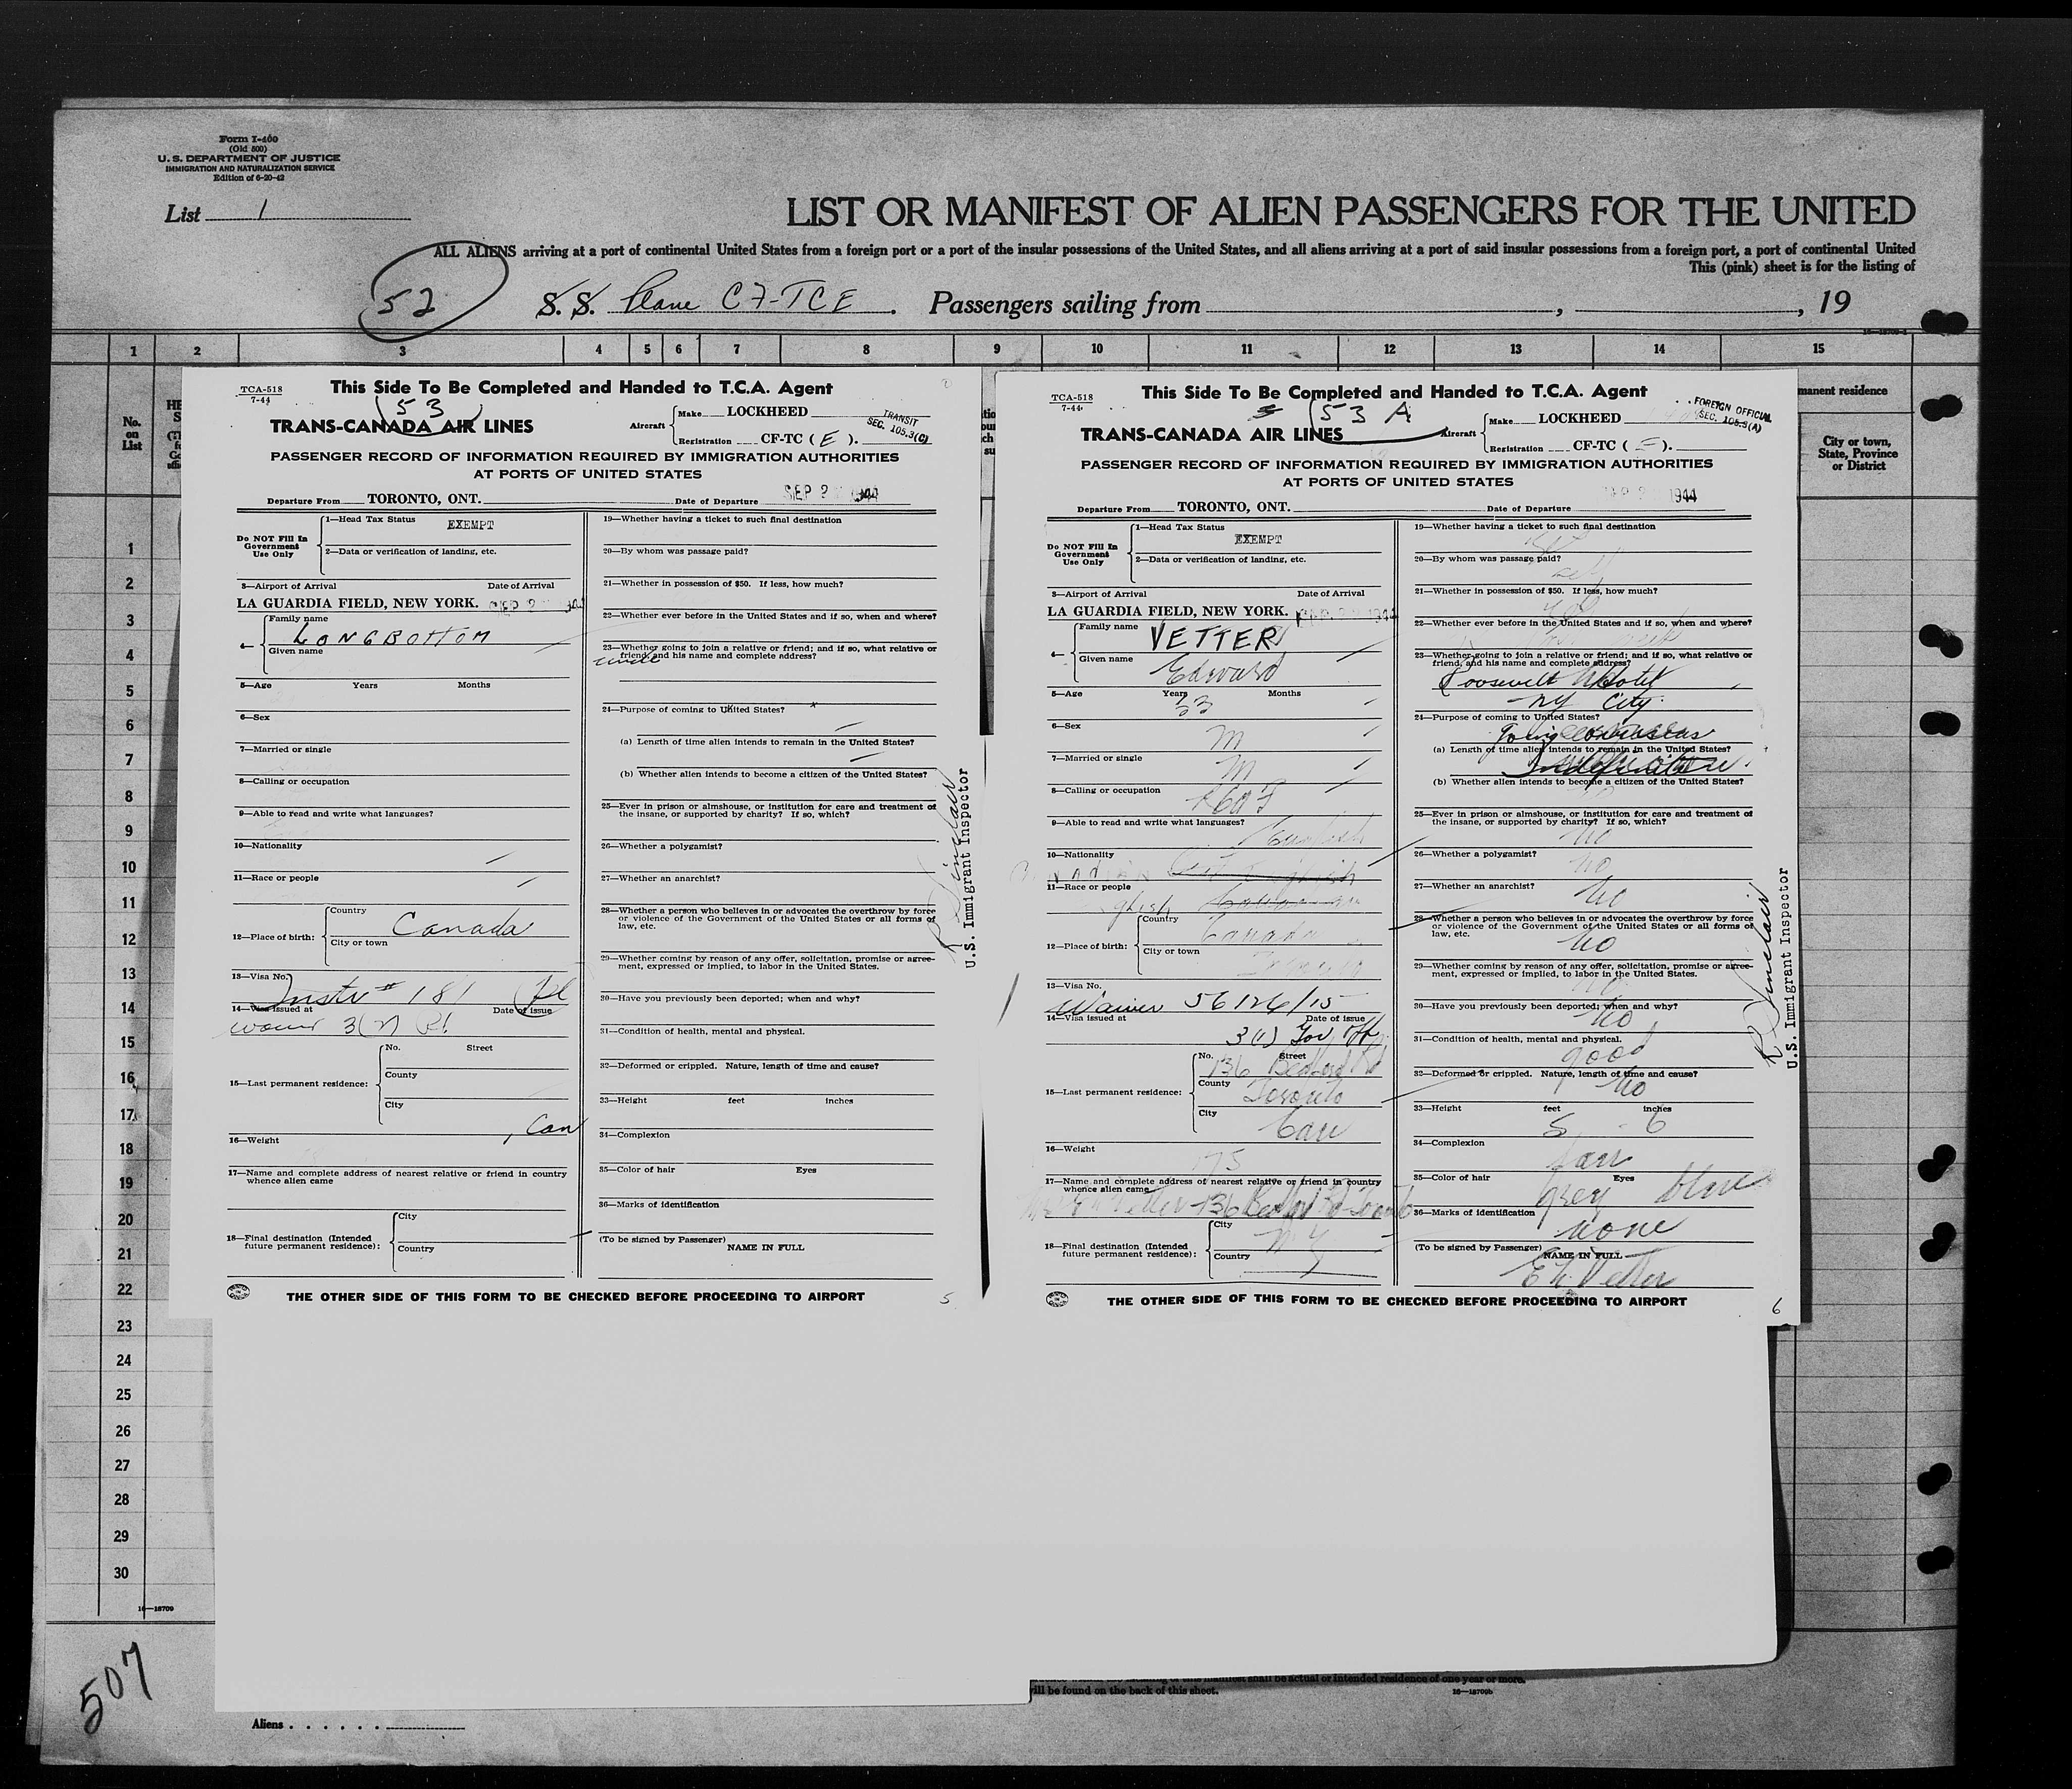 Form I-400
(Old 500)
U. S. DEPARTMENT OF JUSTICE
IMMIGRATION AND NATURALIZATION SERVICE
Edition of 6-20-42
List 1
LIST OR MANIFEST OF ALIEN PASSENGERS FOR THE UNITED
ALL ALIENS arriving at a port of continental United States from a foreign port or a port of the insular possessions of the United States, and all aliens arriving at a port of said insular possessions from a foreign port, a port of continental United
This (pink) sheet is for the listing of
52
S. S. Plane CF-TCE. Passengers sailing from , , 19
1 2 3 4 5 6 7 8 9 10 11 12 13 14 15
No.
on
List
manent residence
City or town,
State, Province
or District
1
2
3
4
5
6
7
8
9
10
11
12
13
14
15
16
17
18
19
20
21
22
23
24
25
26
27
28
29
30
16—18709
TCA-518
7-44
This Side To Be Completed and Handed to T.C.A. Agent
53
TRANS-CANADA AIR LINES
Aircraft
Make LOCKHEED
Registration CF-TC ( E ).
TRANSIT
SEC. 105.3(C)
PASSENGER RECORD OF INFORMATION REQUIRED BY IMMIGRATION AUTHORITIES
AT PORTS OF UNITED STATES
Departure From TORONTO, ONT. Date of Departure SEP 2 1944
Do NOT Fill In
Government
Use Only
1—Head Tax Status EXEMPT
2—Data or verification of landing, etc.
3—Airport of Arrival Date of Arrival
LA GUARDIA FIELD, NEW YORK. SEP 2
4—
Family name
LONGBOTTOM
Given name
5—Age Years Months
6—Sex
7—Married or single
8—Calling or occupation
9—Able to read and write what languages?
10—Nationality
11—Race or people
12—Place of birth:
Country
Canada
City or town
13—Visa No.
Instr # 181
14—Visa issued at Date of issue
15—Last permanent residence:
No. Street
County
City
, Can
16—Weight
17—Name and complete address of nearest relative or friend in country
whence alien came
18—Final destination (Intended
future permanent residence):
City
Country
19—Whether having a ticket to such final destination
20—By whom was passage paid?
21—Whether in possession of $50. If less, how much?
22—Whether ever before in the United States and if so, when and where?
23—Whether going to join a relative or friend; and if so, what relative or
friend, and his name and complete address?
uncle
24—Purpose of coming to United States?
(a) Length of time alien intends to remain in the United States?
(b) Whether alien intends to become a citizen of the United States?
25—Ever in prison or almshouse, or institution for care and treatment of
the insane, or supported by charity? If so, which?
26—Whether a polygamist?
27—Whether an anarchist?
28—Whether a person who believes in or advocates the overthrow by force
or violence of the Government of the United States or all forms of
law, etc.
29—Whether coming by reason of any offer, solicitation, promise or agree-
ment, expressed or implied, to labor in the United States.
30—Have you previously been deported; when and why?
31—Condition of health, mental and physical.
32—Deformed or crippled. Nature, length of time and cause?
33—Height feet inches
34—Complexion
35—Color of hair Eyes
36—Marks of identification
(To be signed by Passenger)
NAME IN FULL
R Sinclair
U.S. Immigrant Inspector
THE OTHER SIDE OF THIS FORM TO BE CHECKED BEFORE PROCEEDING TO AIRPORT
5
TCA-518
7-44
This Side To Be Completed and Handed to T.C.A. Agent
53 A
TRANS-CANADA AIR LINES
Aircraft
Make LOCKHEED
Registration CF-TC ( E ).
FOREIGN OFFICIAL
SEC. 105.3(A)
PASSENGER RECORD OF INFORMATION REQUIRED BY IMMIGRATION AUTHORITIES
AT PORTS OF UNITED STATES
Departure From TORONTO, ONT. Date of Departure 1944
Do NOT Fill In
Government
Use Only
1—Head Tax Status
EXEMPT
2—Data or verification of landing, etc.
3—Airport of Arrival Date of Arrival
LA GUARDIA FIELD, NEW YORK. 1944
4—
Family name
VETTER
Given name
Edward
5—Age Years Months
53
6—Sex
M
7—Married or single
M
8—Calling or occupation
9—Able to read and write what languages?
English
10—Nationality
11—Race or people
12—Place of birth:
Country
Canada
City or town
13—Visa No.
Waiver 56126/15
14—Visa issued at Date of issue
3(1) Gov Off
15—Last permanent residence:
No. Street
136 Bedford Rd
County
Toronto
City
Can
16—Weight
175
17—Name and complete address of nearest relative or friend in country
whence alien came
Vetter - 136 Bedford Rd - Toronto
18—Final destination (Intended
future permanent residence):
City
N Y
Country
19—Whether having a ticket to such final destination
20—By whom was passage paid?
21—Whether in possession of $50. If less, how much?
22—Whether ever before in the United States and if so, when and where?
23—Whether going to join a relative or friend; and if so, what relative or
friend, and his name and complete address?
Roosevelt Hotel
NY City.
24—Purpose of coming to United States?
Going overseas
(a) Length of time alien intends to remain in the United States?
(b) Whether alien intends to become a citizen of the United States?
25—Ever in prison or almshouse, or institution for care and treatment of
the insane, or supported by charity? If so, which?
no
26—Whether a polygamist?
no
27—Whether an anarchist?
no
28—Whether a person who believes in or advocates the overthrow by force
or violence of the Government of the United States or all forms of
law, etc.
no
29—Whether coming by reason of any offer, solicitation, promise or agree-
ment, expressed or implied, to labor in the United States.
no
30—Have you previously been deported; when and why?
no
31—Condition of health, mental and physical.
good
32—Deformed or crippled. Nature, length of time and cause?
no
33—Height feet inches
5 - 6
34—Complexion
fair
35—Color of hair Eyes
grey blue
36—Marks of identification
none
(To be signed by Passenger)
NAME IN FULL
R Sinclair
U.S. Immigrant Inspector
THE OTHER SIDE OF THIS FORM TO BE CHECKED BEFORE PROCEEDING TO AIRPORT
6
manifest shall be actual or intended residence of one year or more.
ill be found on the back of this sheet.
16—18709b
507
Aliens